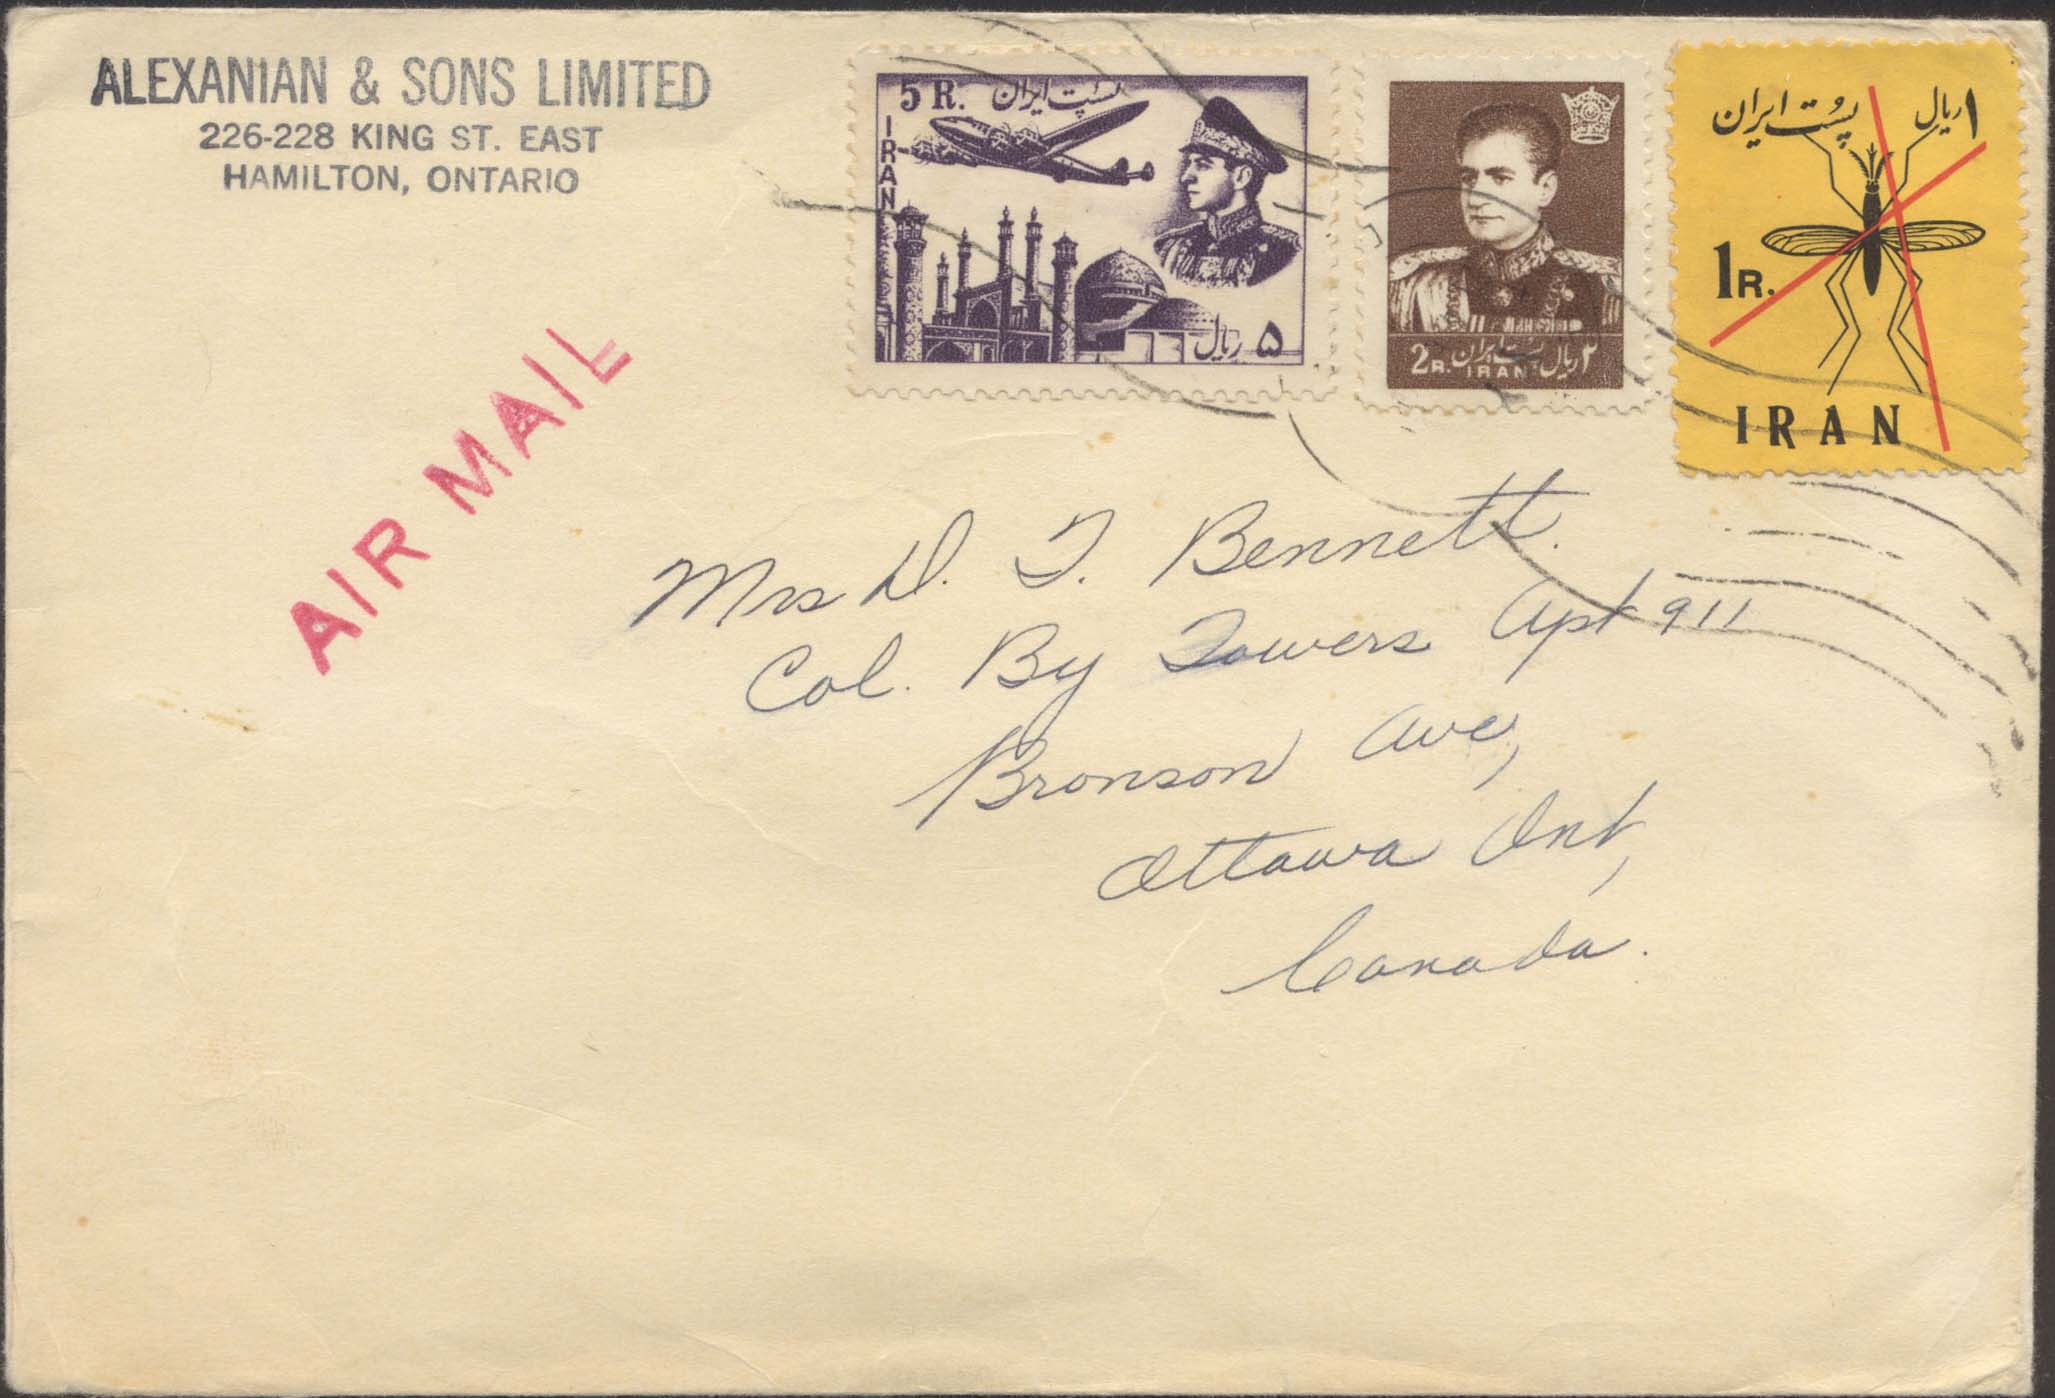 ALEXANIAN & SONS LIMITED
226-228 KING ST. EAST
HAMILTON, ONTARIO
AIR MAIL
5 R. پست ایران
IRAN
۵ ریال
2R. پست ایران ۲ ریال
IRAN
پست ایران ۱ ریال
1R.
IRAN
Mrs D. T. Bennett.
Col. By Towers Apt 911
Bronson Ave,
Ottawa Ont,
Canada.